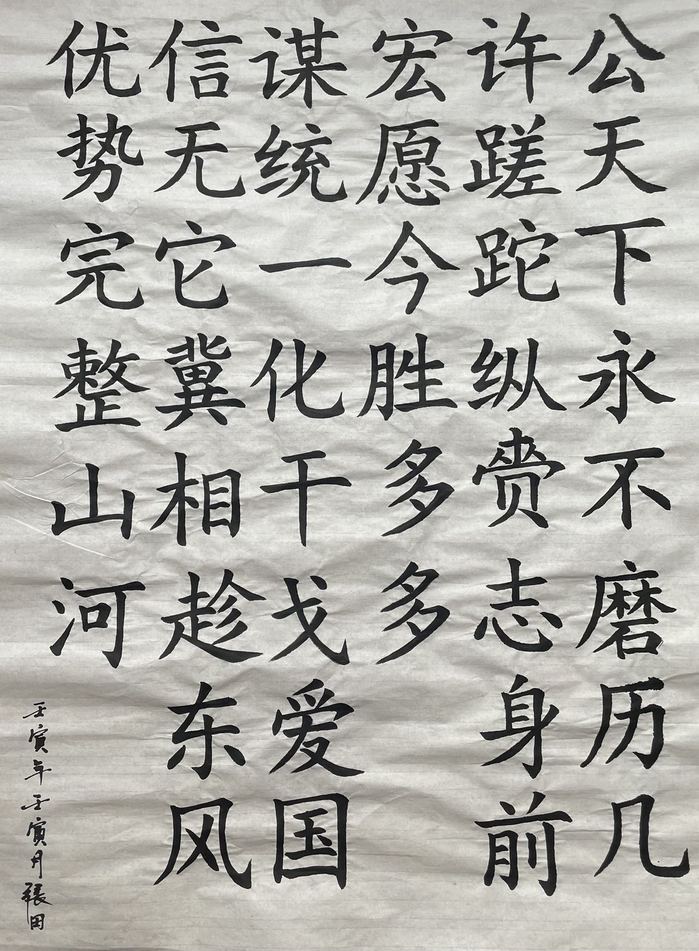 公天下永不磨历几
许蹉跎纵赍志身前
宏愿今胜多多
谋统一化干戈爱国
信无它冀相趁东风
优势完整山河
壬寅年壬寅月張田